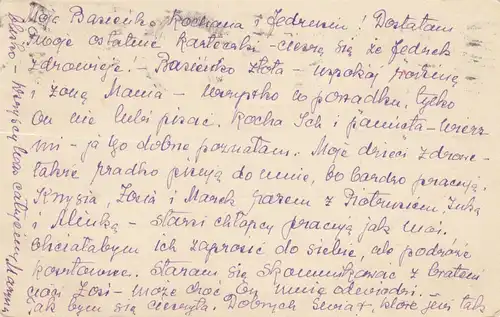 Moje Basieńko kochana i Jędrusiu! Dostałam
Twoje ostatnie karteczki - cieszę się że Jędrek
zdrowieje! - Basieńko złota - uspokój rodzinę
i żonę Mania - wszystko w porządku, tylko
On nie lubi pisać. Kocha Ich i pamięta - wierz
mi - ja go dobrze poznałam. Moje dzieci zdrowe -
także rzadko piszą do mnie, bo bardzo pracują.
Krysia, Zosia i Marek razem z Piotrusiem,
i - starsi chłopcy pracują jak moi.
Chciałabym Ich zaprosić do siebie, ale podróże
kosztowne. Staram się skomunikować z bratem
Zosi - może choć On mnie odwiedzi.
Jak bym się cieszyła. Dobrych Świąt, które już tak
blisko - Wszystkich Was całuję Mamu